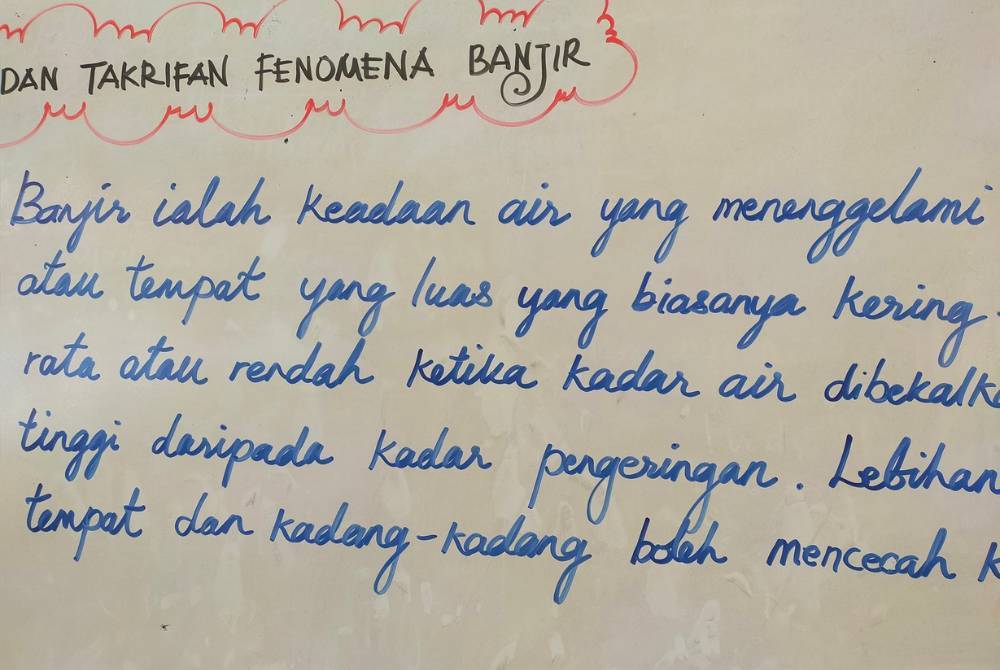 DAN TAKRIFAN FENOMENA BANJIR
Banjir ialah keadaan air yang menenggelami
atau tempat yang luas yang biasanya kering.
rata atau rendah ketika kadar air dibekalka
tinggi daripada kadar pengeringan. Lebihan
tempat dan kadang-kadang boleh mencecah k